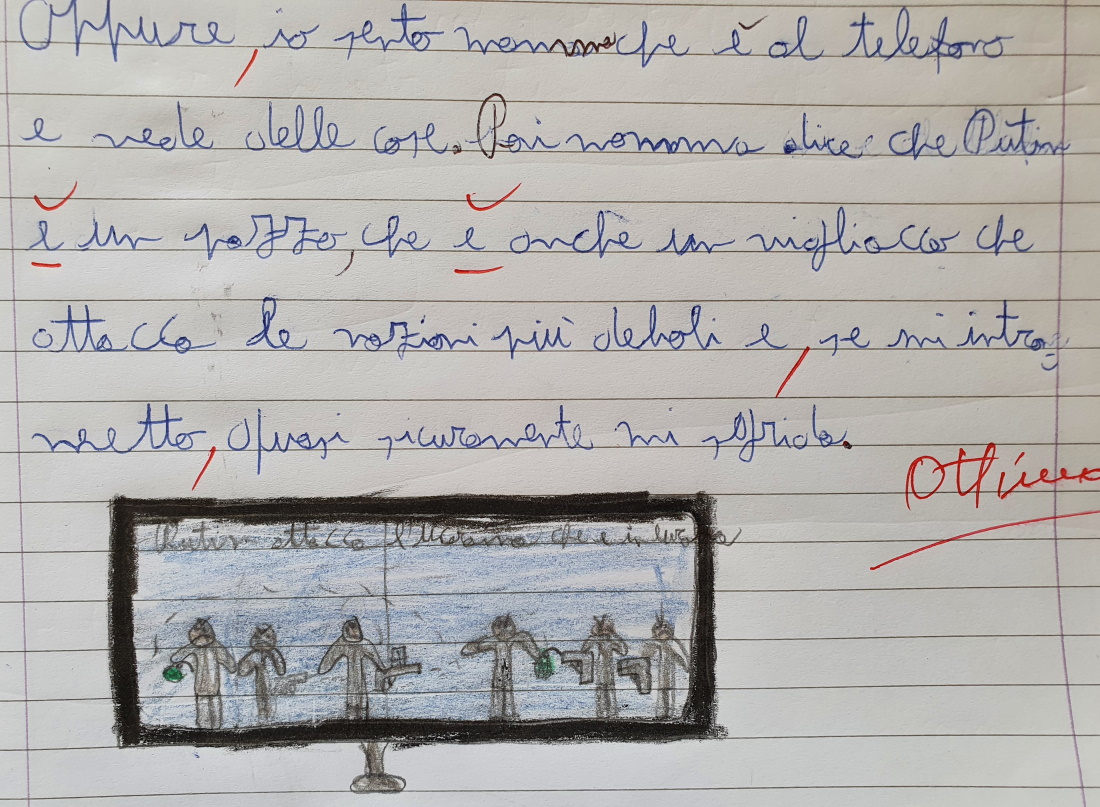 Oppure, io sento mamma che è al telefono
e vede delle cose. Poi mamma dice che Putin
è un pazzo, che è anche un vigliacco che
attacca le nazioni più deboli e, se mi intro=
metto, quasi sicuramente mi sgrida.
Ottimo
Putin attacca l'Ucraina che è in Europa